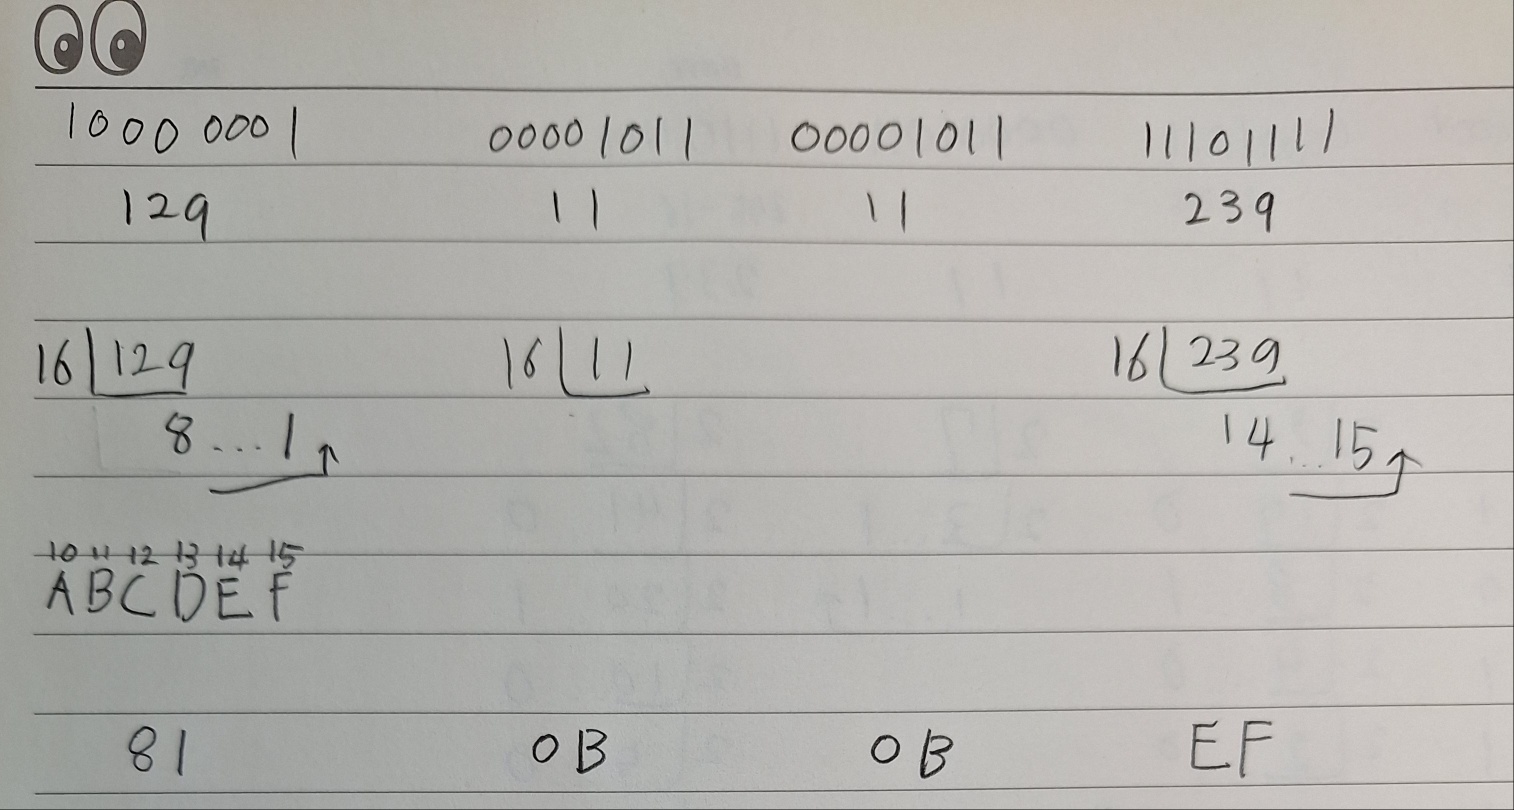 1000 0001 00001011 00001011 11101111
129 11 11 239
16 129 16 11 16 239
8...1 14...15
10 11 12 13 14 15
A B C D E F
81 0B 0B EF